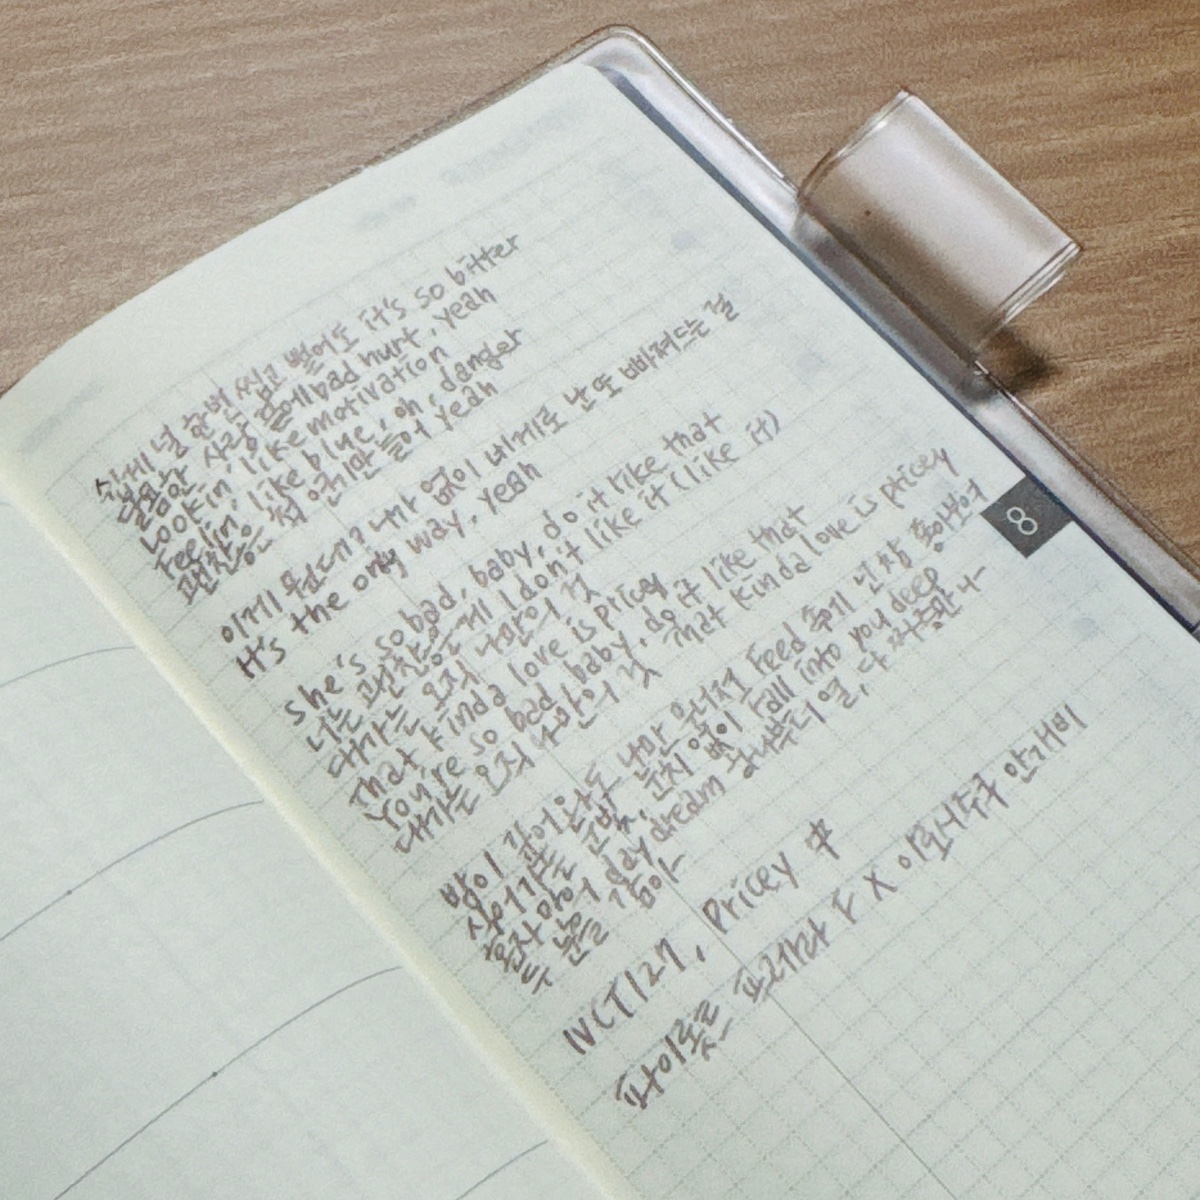 쉽게 널 한번 씹고 뱉어도 it's so bitter
달콤한 사랑 끝에 bad hurt, yeah
Lookin, like motivation
Feelin, like blue, oh, danger
괜찮은 척 연기만 늘어 yeah
이게 뭔데? 나가 없이 네게로 난 또 빠져드는 걸
It's the only way, yeah
She's so bad, baby, do it like that
너는 괜찮은 게 I don't like it (like it)
대가는 오직 나만의 것
That kinda love is pricey
You're so bad, baby, do it like that
대가는 오직 나만의 것 That kinda love is pricey
밤이 깊어와도 나만 원너전 Feed 속에 넌 참 좋아보여
식어가는 군밤, 눈치 없이 Fall into you deep
혼자만의 day dream
또 눈을 감아
NCT127, Pricey 中
파이롯트 프레라 F X 이로시주쿠 안개비
8